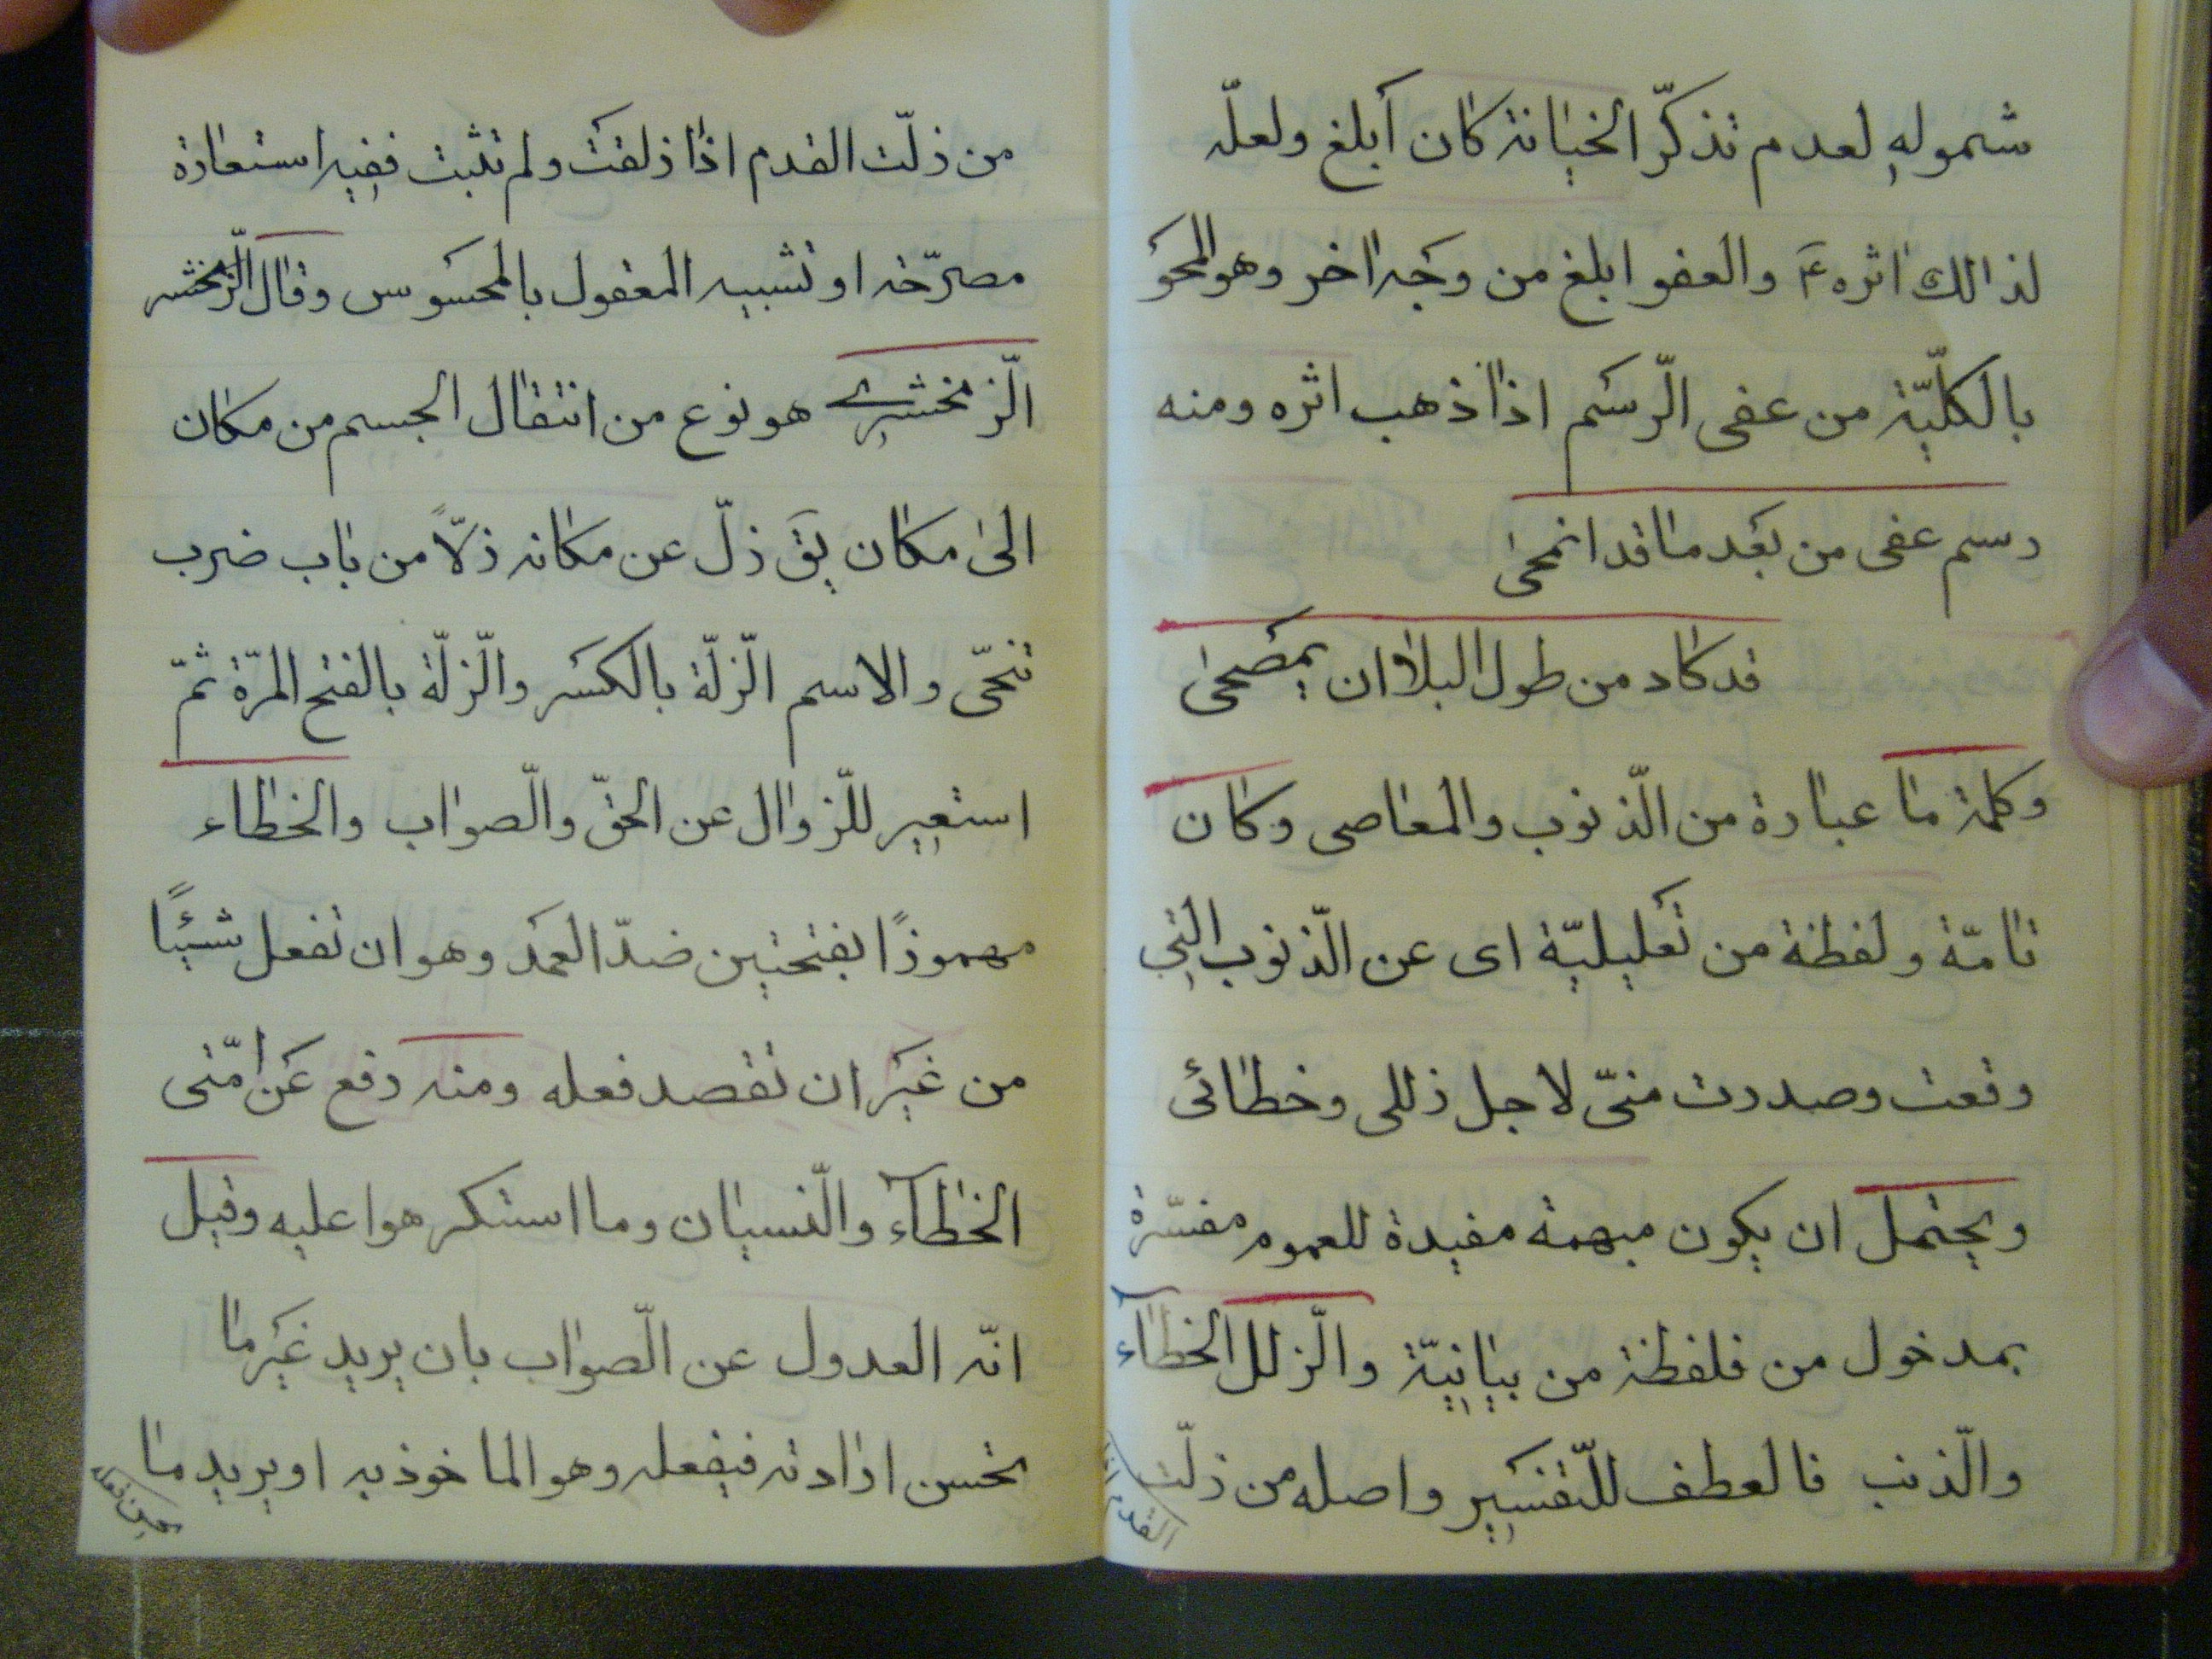 شموله لعدم تذكّر الخيانة كان أبلغ ولعلّه
لذالك اثره ع والعفو ابلغ من وجه اخر وهو المحو
بالكلّيّة من عفى الرّسم اذا ذهب اثره ومنه
رسم عفى من بعد ما قد انمحى
قد كاد من طول البلا ان يمصحى
وكلمة ما عبارة من الذّنوب والمعاصى وكان
تامّة ولفظة من تعليليّة اى عن الذّنوب التي
وقعت وصدرت منّى لاجل زللى وخطائى
ويحتمل ان يكون مبهمة مفيدة للعموم مفسّرة
بمدخول من فلفظة من بيانيّة والزّلل الخطآء
والذّنب فالعطف للتّفسير واصله من زلّت
القدم اذا
من زلّت القدم اذا زلقت ولم تثبت ففيه استعارة
مصرّحة او تشبيه المعقول بالمحسوس وقال الزّمخشر
الزّمخشري هو نوع من انتقال الجسم من مكان
الى مكان يق زلّ عن مكانه زلّاً من باب ضرب
تنحّى والاسم الزّلّة بالكسر والزّلّة بالفتح المرّة ثمّ
استعير للزّوال عن الحقّ والصّواب والخطاء
مهموزًا بفتحتين ضدّ العمد وهو ان تفعل شيئًا
من غير ان تقصد فعله ومنه رفع عن أمّتى
الخطآء والنّسيان وما استكرهوا عليه وقيل
انّه العدول عن الصّواب بان يريد غير ما
تحسن ارادته فيفعله وهو الماخوذ به او يريد ما